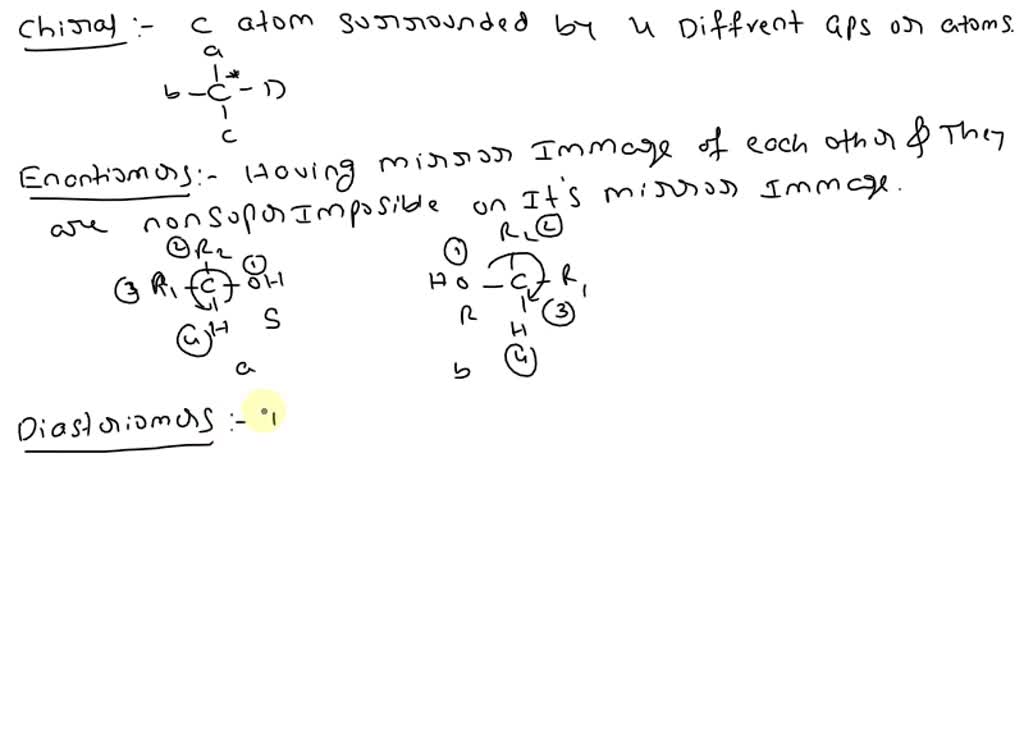 Chiral :- C atom surrounded by 4 Diffrent gps or atoms.
a
b - C* - D
c
Enantiomers :- Having mirror Immage of each other & They
are nonsuperImposible on It's mirror Immage.
② R2
③ R1 - C - OH ①
④ H S
a
R2 ②
① HO - C - R1 ③
R H
b ④
Diasteriomers :-